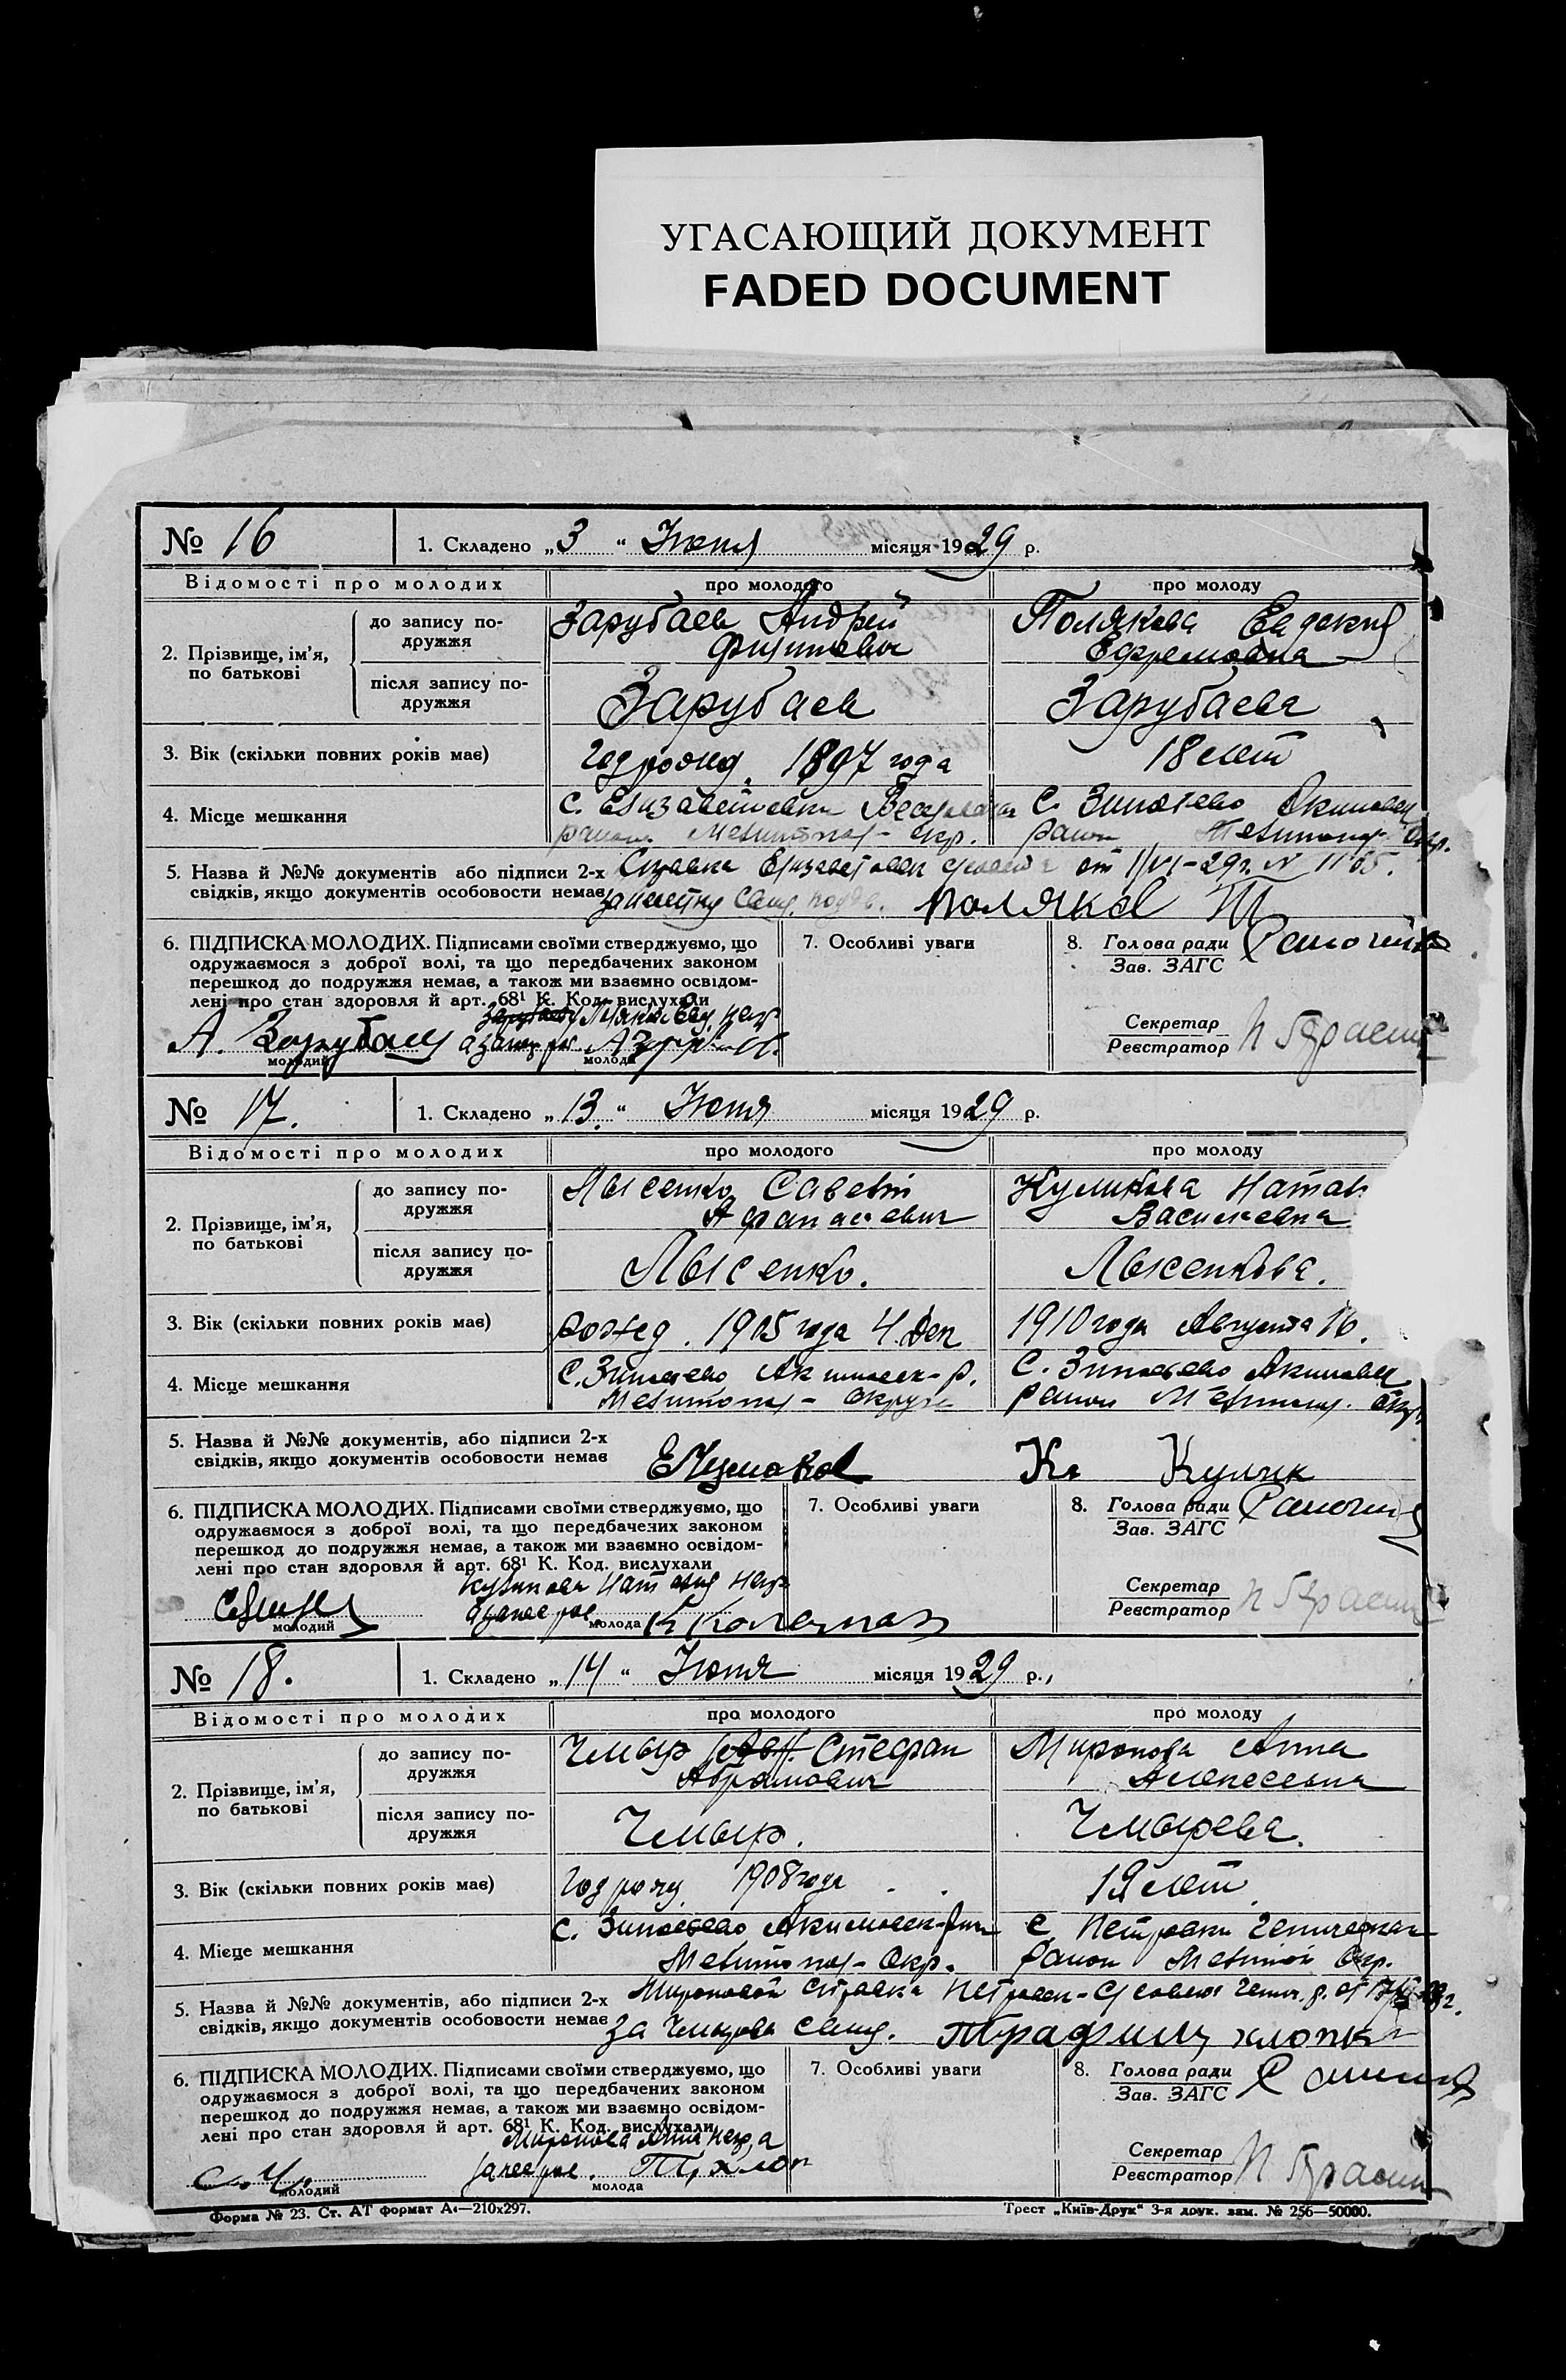 УГАСАЮЩИЙ ДОКУМЕНТ
FADED DOCUMENT
№ 16
1. Складено „3“ Июня місяця 1929 р.
Відомості про молодих
про молодого
про молоду
2. Прізвище, ім’я, по батькові
до запису подружжя
Зарубаев Андрей
Полякова Евдокия
Ефремовна
після запису подружжя
Зарубаев
Зарубаева
3. Вік (скільки повних років має)
1897 года
18 лет
4. Місце мешкання
с. Елизаветовка
с. Зиновево Акимовск
района Мелитопол- окр.
район Мелитопол- окр.
5. Назва й №№ документів або підписи 2-х
свідків, якщо документів особовости немає
Справка от 1/VI-29г. N 1165.
Поляков
6. ПІДПИСКА МОЛОДИХ. Підписами своїми стверджуємо, що
одружаємося з доброї волі, та що передбачених законом
перешкод до подружжя немає, а також ми взаємно освідом-
лені про стан здоровля й арт. 68¹ К. Код. вислухали
А. Зарубаев
молодий
молода
7. Особливі уваги
8. Голова ради
Зав. ЗАГС
Секретар
Реєстратор
№ 17.
1. Складено „13.“ Июня місяця 1929 р.
Відомості про молодих
про молодого
про молоду
2. Прізвище, ім’я, по батькові
до запису подружжя
Лысенко Савелий
Куликова Натал
Афанасевич
Василевна
після запису подружжя
Лысенко.
Лысенкова.
3. Вік (скільки повних років має)
рожед. 1905 года 4 Дек
1910 года Августа 16.
4. Місце мешкання
с. Зиновево Акимовск- р.
с. Зиновево Акимовск
Мелитопол- округа
район Мелитопол. окр.
5. Назва й №№ документів, або підписи 2-х
свідків, якщо документів особовости немає
Кулик
6. ПІДПИСКА МОЛОДИХ. Підписами своїми стверджуємо, що
одружаємося з доброї волі, та що передбачених законом
перешкод до подружжя немає, а також ми взаємно освідом-
лені про стан здоровля й арт. 68¹ К. Код. вислухали
Куликова Наталия негр
молодий
молода
7. Особливі уваги
8. Голова ради
Зав. ЗАГС
Секретар
Реєстратор
№ 18.
1. Складено „14“ Июня місяця 1929 р.,
Відомості про молодих
про молодого
про молоду
2. Прізвище, ім’я, по батькові
до запису подружжя
Чмыр Стефан
Миронова Анна
Абрамович
Алексеевна
після запису подружжя
Чмыр.
Чмырева.
3. Вік (скільки повних років має)
1908 года
19 лет
4. Місце мешкання
с. Зиновево Акимовск-
с. Петровки Геническаго
Мелитопол- Окр.
район Мелитоп Окр.
5. Назва й №№ документів, або підписи 2-х
свідків, якщо документів особовости немає
Мироновой справка Петровск-
за Чмырева
6. ПІДПИСКА МОЛОДИХ. Підписами своїми стверджуємо, що
одружаємося з доброї волі, та що передбачених законом
перешкод до подружжя немає, а також ми взаємно освідом-
лені про стан здоровля й арт. 68¹ К. Код. вислухали
Миронова Анна негр, а
С. Ч.
молодий
молода
7. Особливі уваги
8. Голова ради
Зав. ЗАГС
Секретар
Реєстратор
Форма № 23. Ст. АТ формат А4—210х297.
Трест „Київ-Друк“ 3-я друк. зам. № 256—50000.